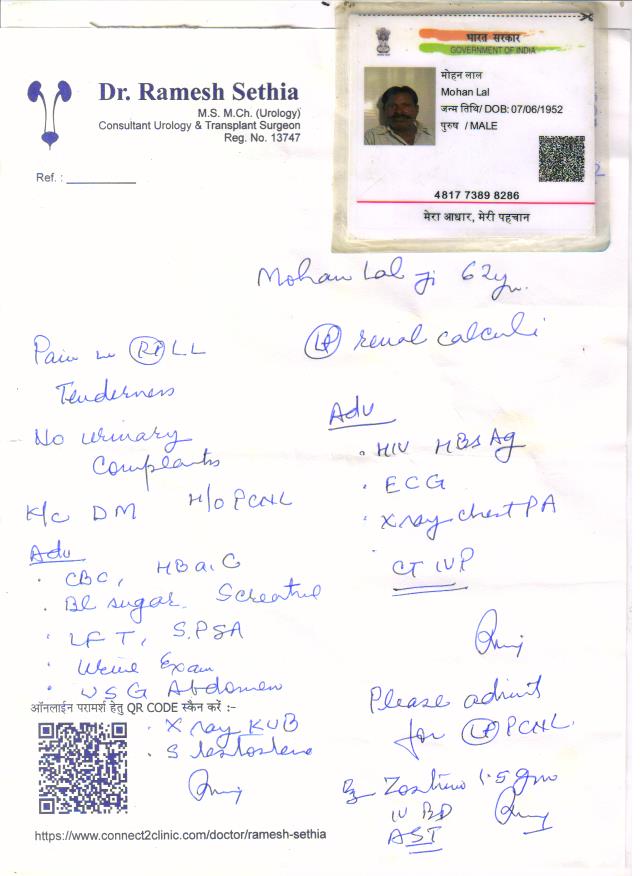 Dr. Ramesh Sethia
M.S. M.Ch. (Urology)
Consultant Urology & Transplant Surgeon
Reg. No. 13747
Ref. :
भारत सरकार
GOVERNMENT OF INDIA
मोहन लाल
Mohan Lal
जन्म तिथि/ DOB: 07/06/1952
पुरुष / MALE
4817 7389 8286
मेरा आधार, मेरी पहचान
Mohan Lal ji 62yr.
Pain in Rt LL
Tenderness
No urinary
Complants
K/c DM H/o PCNL
Adv
. CBC, HBa1C
. Bl sugar. Screatine
. LFT, S.PSA
. Urine Exam
. USG Abdomen
. X ray KUB
. S testosterone
Lt renal calculi
Adv
. HIV HBsAg
. ECG
. X ray chest PA
. CT IVP
Please admit
for Lt PCNL
1.5 gm
IV BD
AST
ऑनलाईन परामर्श हेतु QR CODE स्कैन करें :-
https://www.connect2clinic.com/doctor/ramesh-sethia